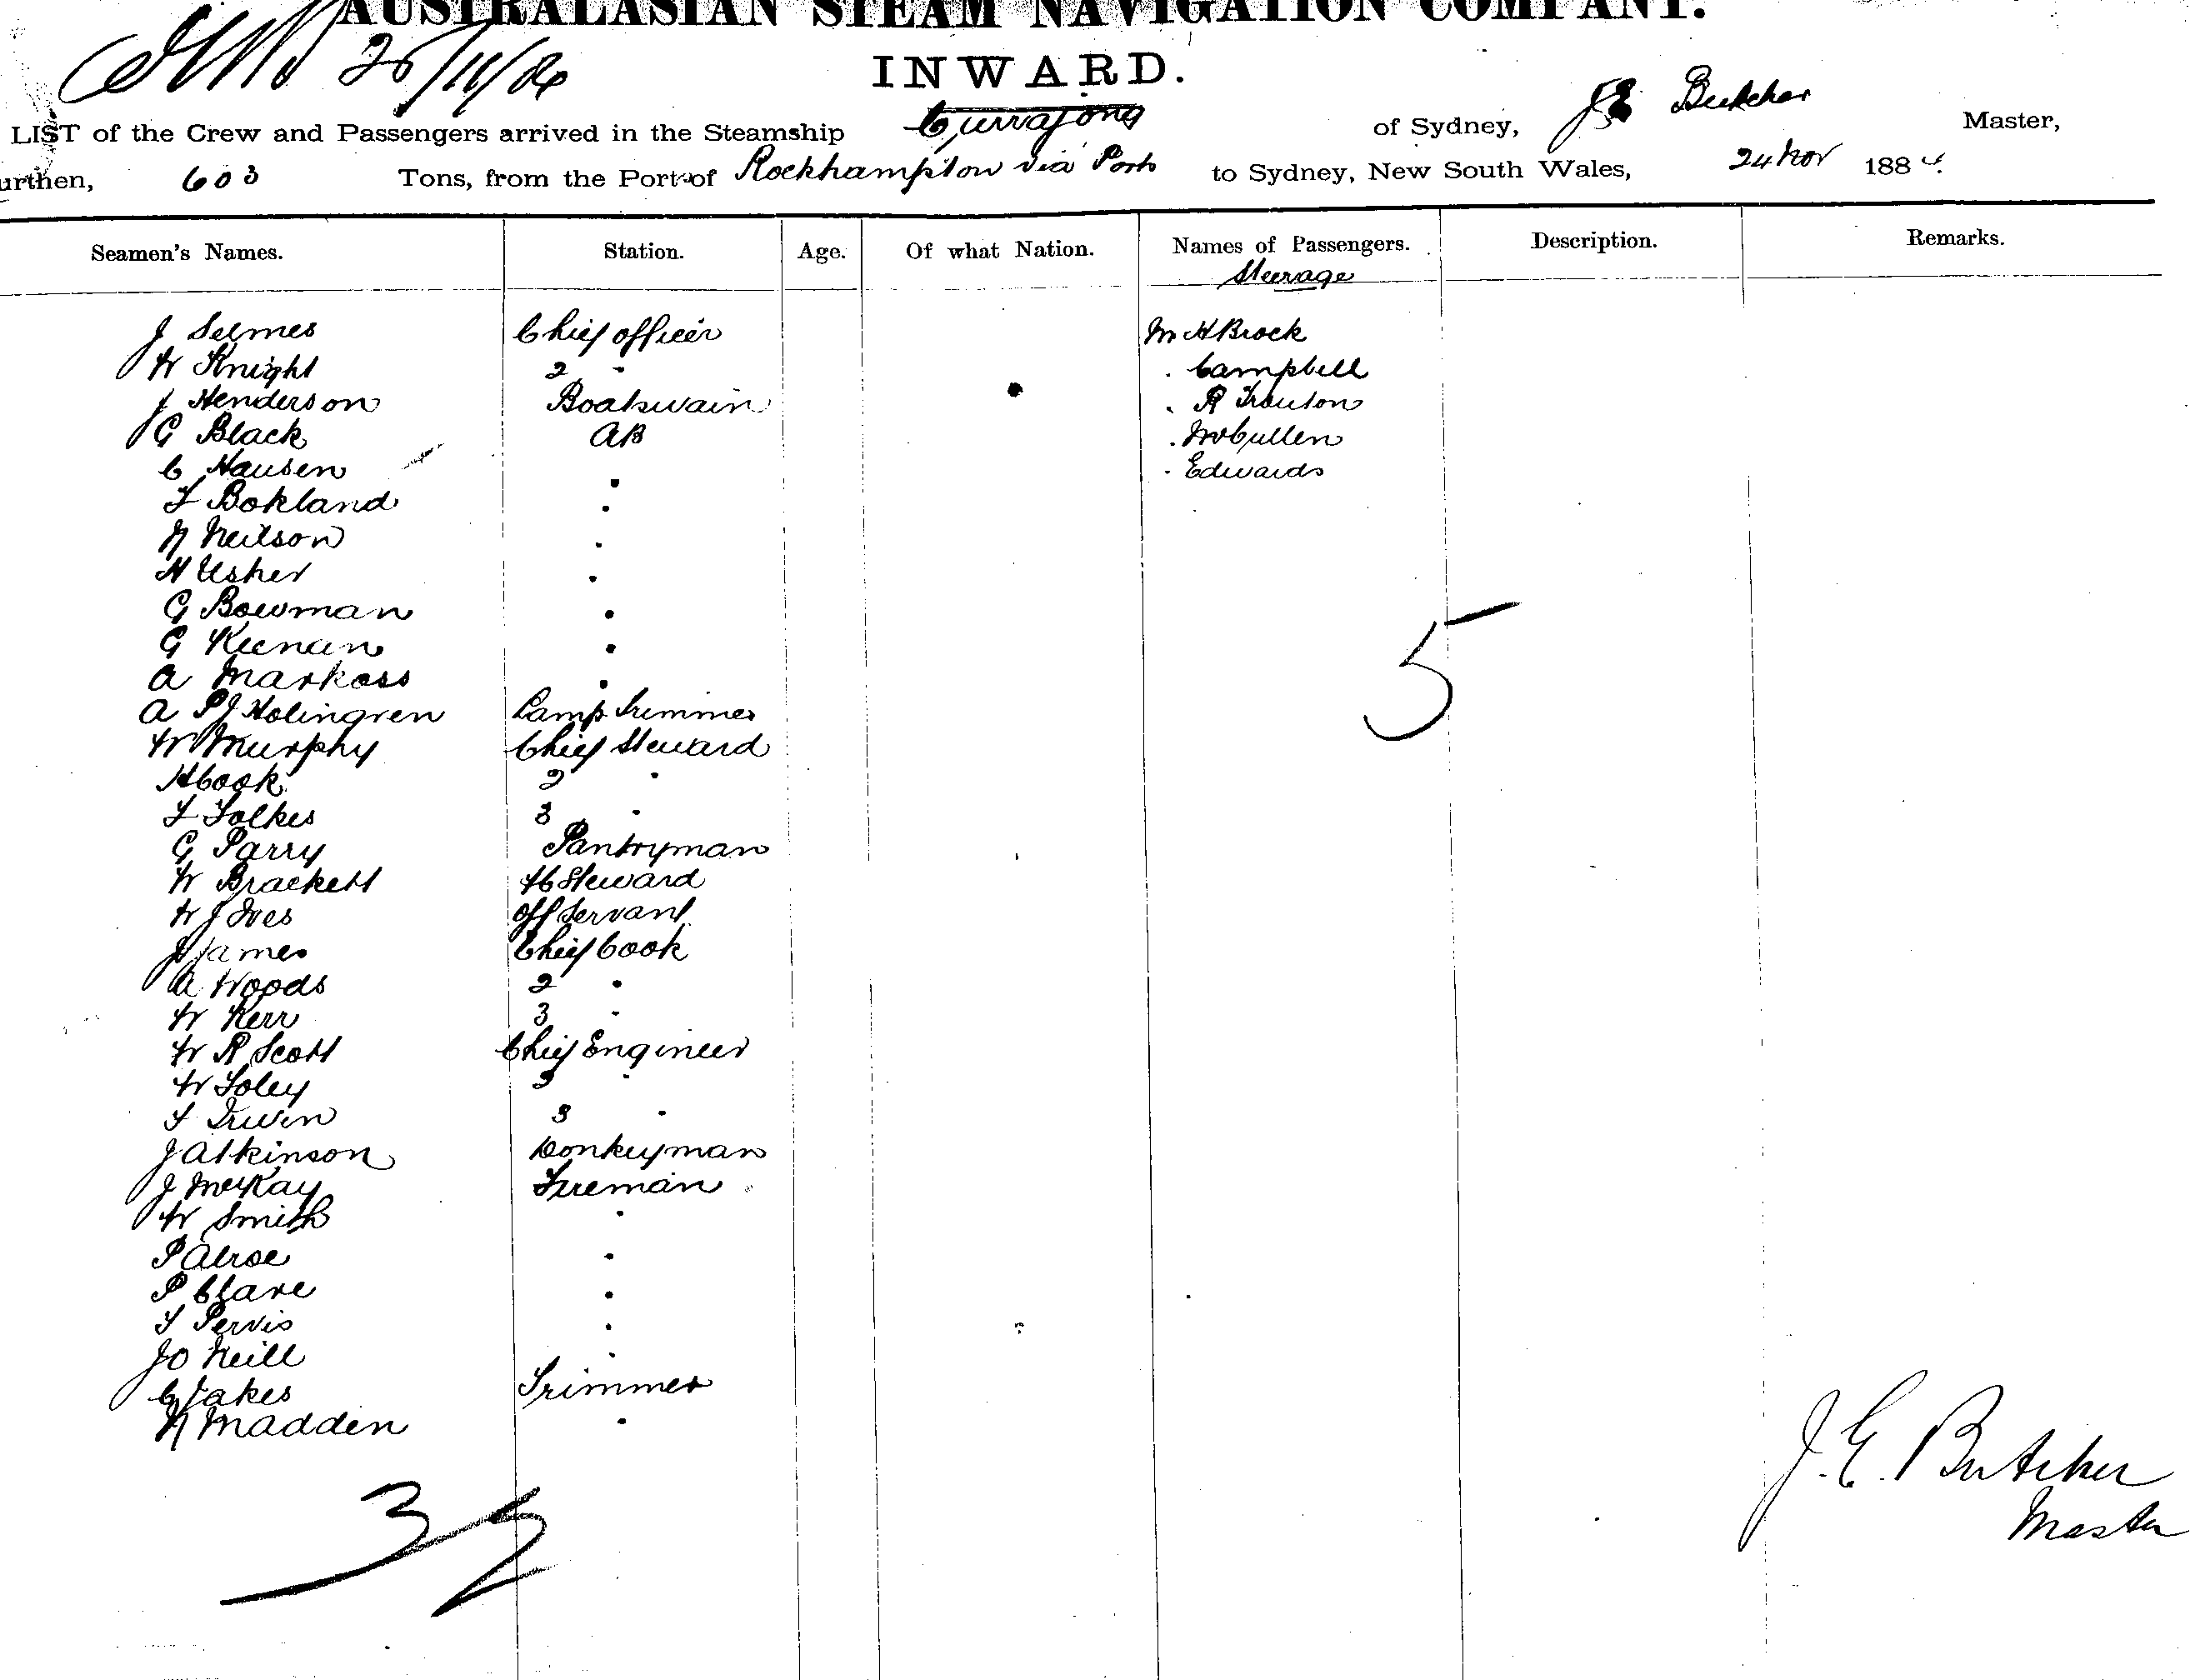 AUSTRALASIAN STEAM NAVIGATION COMPANY.
INWARD.
LIST of the Crew and Passengers arrived in the Steamship Currajong of Sydney, JE Butcher Master,
urthen, 603 Tons, from the Port of Rockhampton via Ports to Sydney, New South Wales, 24 Nov 1884.
Seamen's Names. Station. Age. Of what Nation. Names of Passengers. Description. Remarks.
Steerage
J Selmes Chief officer Mr H Brock
W Knight 2 " " Campbell
J Henderson Boatswain " R Trouton
G Black AB " McCullen
C Hausen " " Edwards
F Bokland "
N Neilson "
H Usher "
G Bowman "
G Keenan "
A Markoss "
A P J Holingren Lamp Trimmer
W Murphy Chief Steward
H Cook 2 "
F Folkes 3 "
G Parry Pantryman
W Brackett Steward
W J Ives Off Servant
J James Chief Cook
A Woods 2 "
W Kerr 3 "
W R Scott Chief Engineer
W Foley 2 "
F Irwin 3 "
J Atkinson Donkeyman
J McKay Fireman
W Smith "
P Alroe "
P Clare "
T Pervis "
J O Neill "
C Jakes Trimmer
N Madden "
5
J. E. Butcher
Master